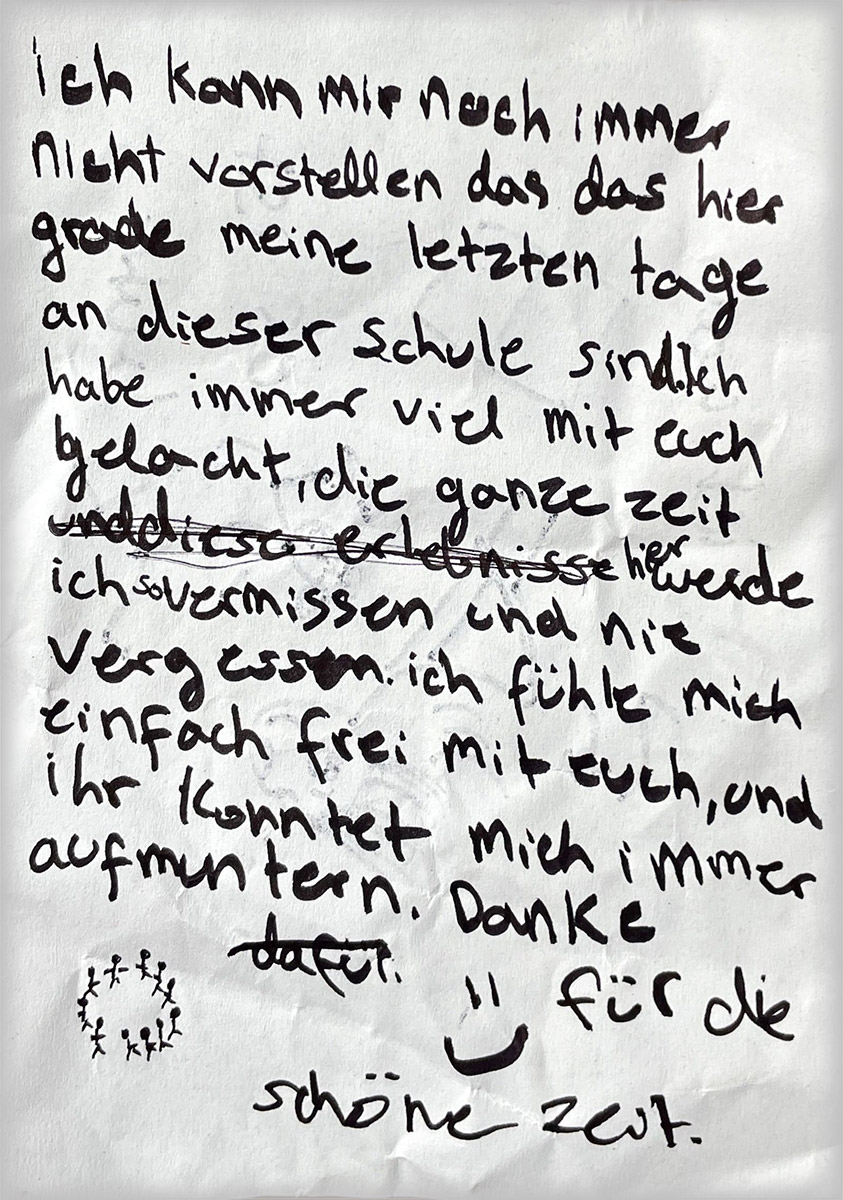 ich kann mir noch immer
nicht vorstellen das das hier
grade meine letzten tage
an dieser schule sind.Ich
habe immer viel mit euch
gelacht, die ganze zeit
unddiese erlebnisse hier werde
ich so vermissen und nie
vergessen. ich fühle mich
einfach frei mit euch, und
ihr konntet mich immer
aufmuntern. Danke
dafür.
für die
schöne zeit.